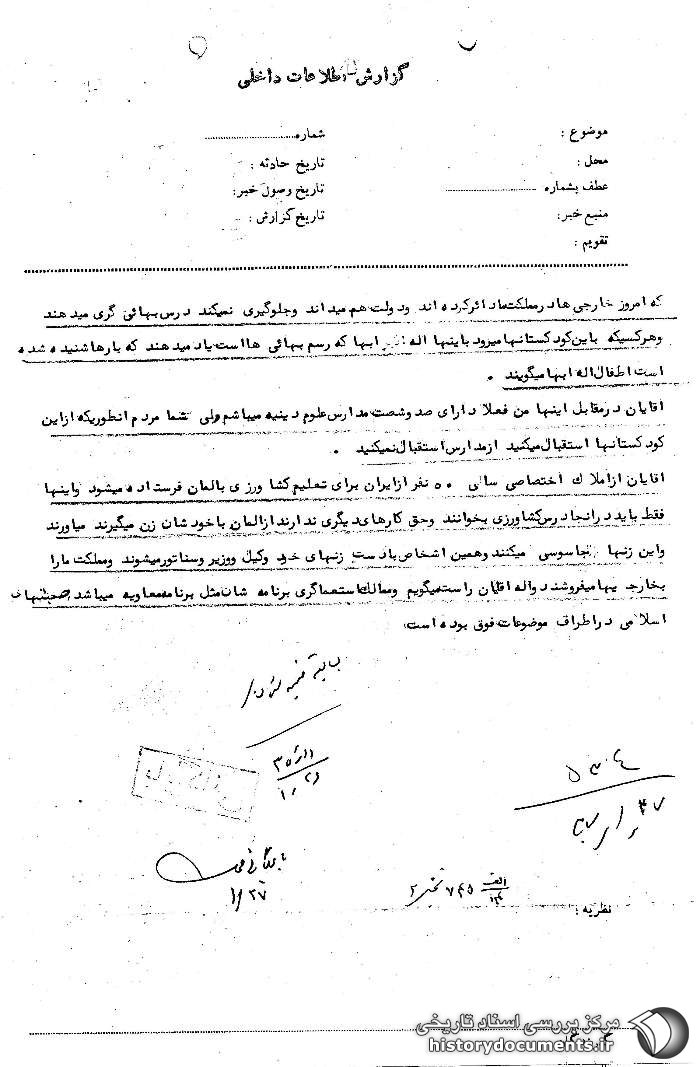 گزارش اطلاعات داخلی
موضوع :
شماره
محل :
تاریخ حادثه :
عطف بشماره
تاریخ وصول خبر:
منبع خبر:
تاریخ گزارش :
تقویم :
که امروز خارجی ها در مملکت ما دائر کرده اند ودولت هم میداند وجلوگیری نمیکند درس بهائی گری میدهند
وهرکسیکه باین کودکستانها میرود باینها اله ابها که رسم بهائی ها است یاد میدهند که بارها شنیده شده
است اطفال اله ابها میگویند .
آقایان در مقابل اینها من فعلا دارای صد وشصت مدارس علوم دینیه میباشم ولی شما مردم انطوریکه ازاین
کودکستانها استقبال میکنید ازمدارس استقبال نمیکنید .
اقایان ازاملاک اختصاصی سالی ۵۰ نفر ازایران برای تعلیم کشاورزی بالمان فرستاده میشود واینها
فقط باید درانجا درس کشاورزی بخوانند وحق کارهای دیگری ندارند ازالمان باخودشان زن میگیرند میاورند
واین زنها جاسوسی میکنند وهمین اشخاص بادست زنهای خود وکیل ووزیر وسناتور میشوند ومملکت مارا
بخارجیها میفروشند واله اقایان راست میگویم وممالک استعماگری برنامه شان مثل برنامه معاویه میباشد
اسلامی دراطراف موضوعات فوق بوده است
بایگانی
۷۴۵
نظریه :
مرکز بررسی اسناد تاریخی
historydocuments.ir